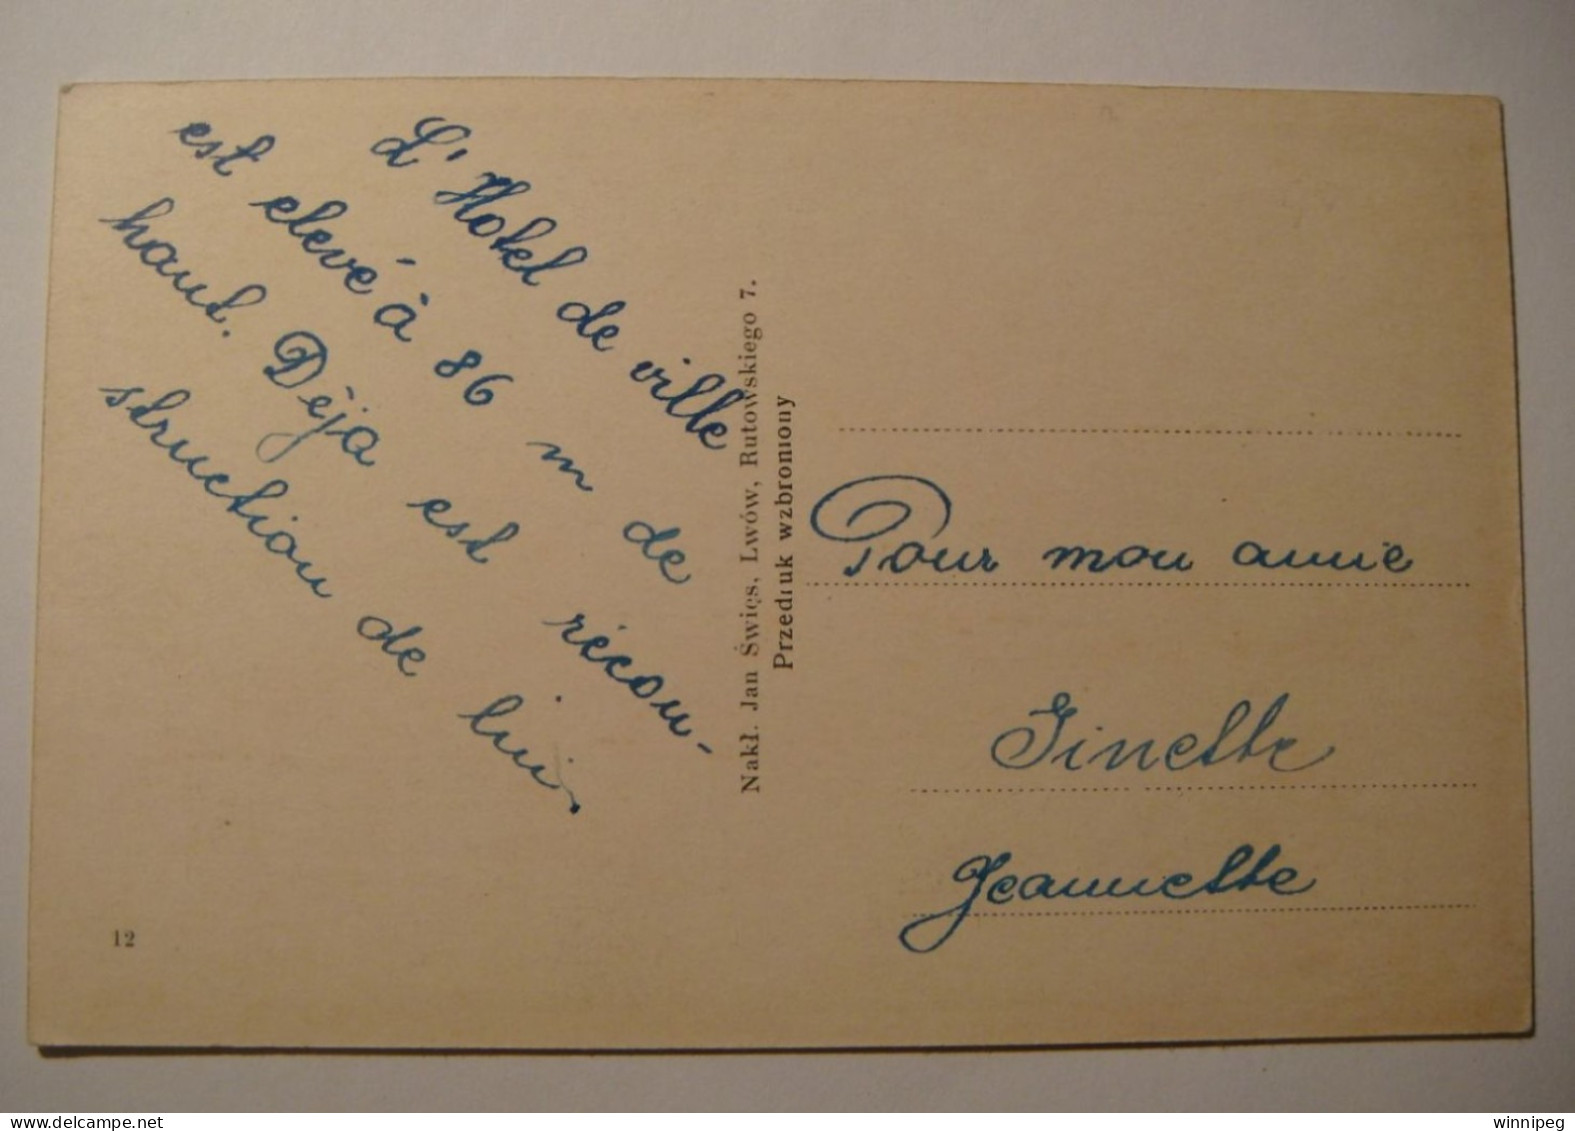 L'Hotel de ville
est elevé à 86 m de
haut. Déja est récon-
struction de lui.
Nakł. Jan Święs, Lwów, Rutowskiego 7.
Przedruk wzbroniony
Pour mon amie
Ginette
Jeannette
12
winnipeg